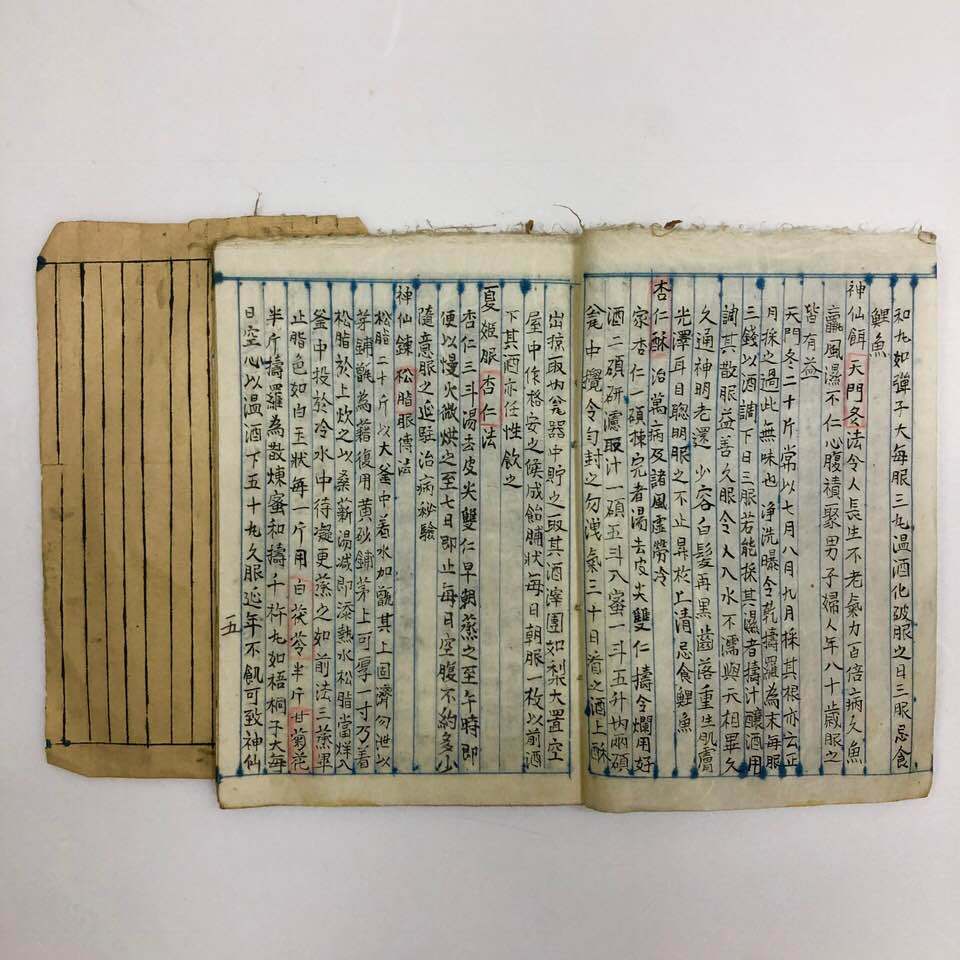 和丸如彈子大每服三丸温酒化破服之日三服忌食
鯉魚
神仙餌天門冬法令人長生不老氣力百倍病久魚
羸風濕不仁心腹積聚男子婦人年八十歲服之
皆有益
天門冬二十斤常以七月八月九月採其根亦云正
月採之過此無味也净洗曝令乾擣羅為末每服
三錢以酒調下日三服若能採其濕者擣汁釀酒用
調其散服益善久服令人入水不濡與天相畢久
久通神明老還少容白髮再黑齒落重生肌膚
光澤耳目聰明服之不止昇於上清忌食鯉魚
杏仁酥治萬病及諸風虛勞冷
家杏仁一碩揀完者湯去皮尖雙仁擣令爛用好
酒二碩研濾取汁一碩五斗入蜜一斗五升內兩碩
瓮中攪令勻封之勿洩氣三十日看之酒上酥
出掠取內瓮器中貯之取其酒滓團如梨大置空
屋中作格安之候成飴脯狀每日朝服一枚以前酒
下其酒亦任性飲之
夏姬服杏仁法
杏仁三斗湯去皮尖雙仁早朝蒸之至午時即
便以慢火微烘之至七日即止每日空腹不約多少
隨意服之延駐治病秘驗
神仙鍊松脂服傳法
松脂二十斤以大釜中着水加甑其上固濟勿泄以
茅鋪甑為藉復用黃砂鋪茅上可厚一寸乃着
松脂於上炊之以桑薪湯減即添熱水松脂當烊入
釜中投於冷水中待凝更蒸之如前法三蒸畢
止脂色如白玉狀每一斤用白茯苓半斤甘菊花
半斤擣羅為散煉蜜和擣千杵丸如梧桐子大每
日空心以温酒下五十丸久服延年不飢可致神仙
五